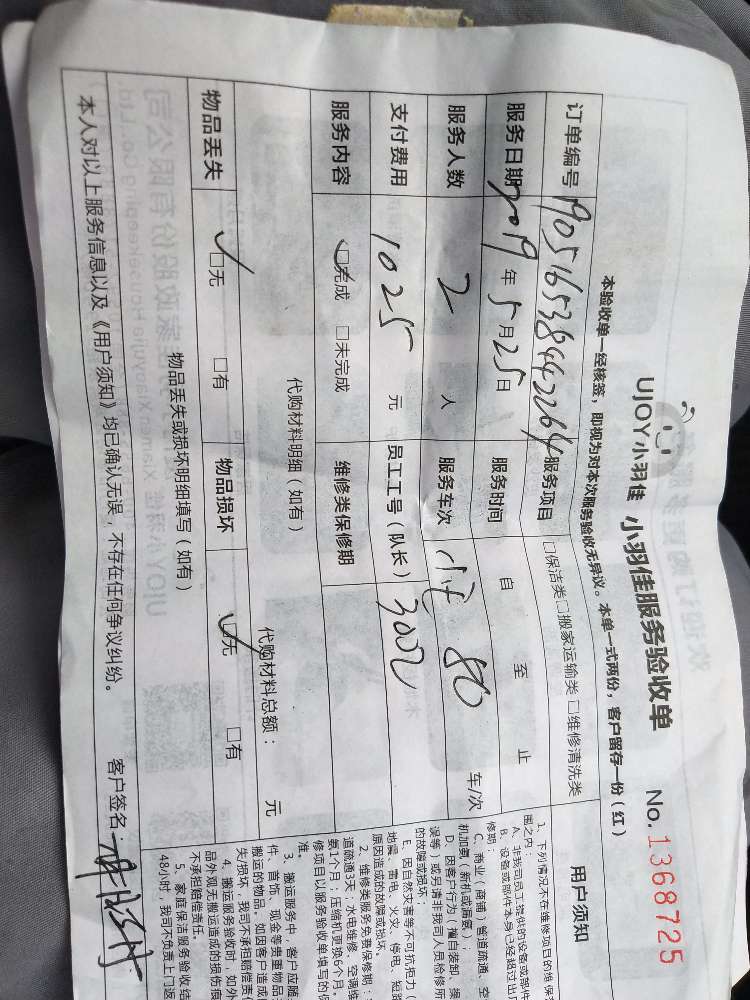 UJOY小羽佳 小羽佳服务验收单 No.1368725
本验收单一经核签,即视为对本次服务验收无异议。本单一式两份,客户留存一份(红)
订单编号 服务项目 □保洁类□搬家运输类□维修清洗类
服务日期 2019年5月25日 服务时间 自 至 止
服务人数 2 人 服务车次 80 车/次
支付费用 1025 元 员工工号(队长) 3002
服务内容 ☑完成 □未完成 维修类保修期
代购材料明细(如有) 代购材料总额: 元
物品丢失 ☑无 □有 物品损坏 ☑无 □有
物品丢失或损坏明细填写(如有)
本人对以上服务信息以及《用户须知》均已确认无误,不存在任何争议纠纷。 客户签名:
用户须知
1、下列情况不在维修项目的维保
围之内
A、非我司员工提供的设备或部件
B、设备或部件本身已经超过出
修期;
C、商业(商铺)管道疏通、空
机加氟(新机或漏氟);
D、因客户行为(擅自装卸、操
误等)或另请非我司人员检修所
的故障或损坏
E、因自然灾害等不可抗拒力(
地震、雷电、火灾、停电、短路
原因造成的故障或损坏。
2、维修类服务免费保修期:
道疏通3天;水电维修、空调维
氨1个月;压缩机更换6个月,
修项目以服务验收单填写的保
准。
3、搬运服务中,客户应随
件、首饰、现金等贵重物品
搬运的物品。如因客户造成
失/损坏,我司不承担赔偿责
4、搬运服务验收时,如外
品外观无搬运造成的损伤痕
不承担赔偿责任。
5、家庭保洁服务验收结
48小时,我司不负责上门返